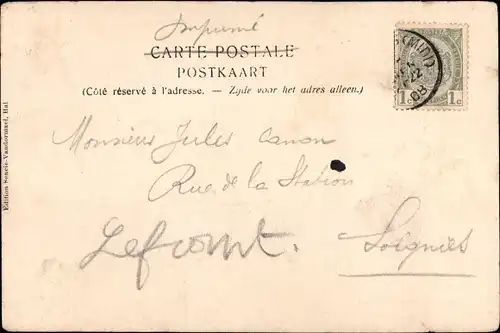 Imprimé
CARTE POSTALE
POSTKAART
(Côté réservé à l'adresse. — Zijde voor het adres alleen.)
1c 1c
08
Edition Soncie-Vandormael, Hal
Monsieur Jules Canon
Rue de la Station
Lefromt.
Soignies